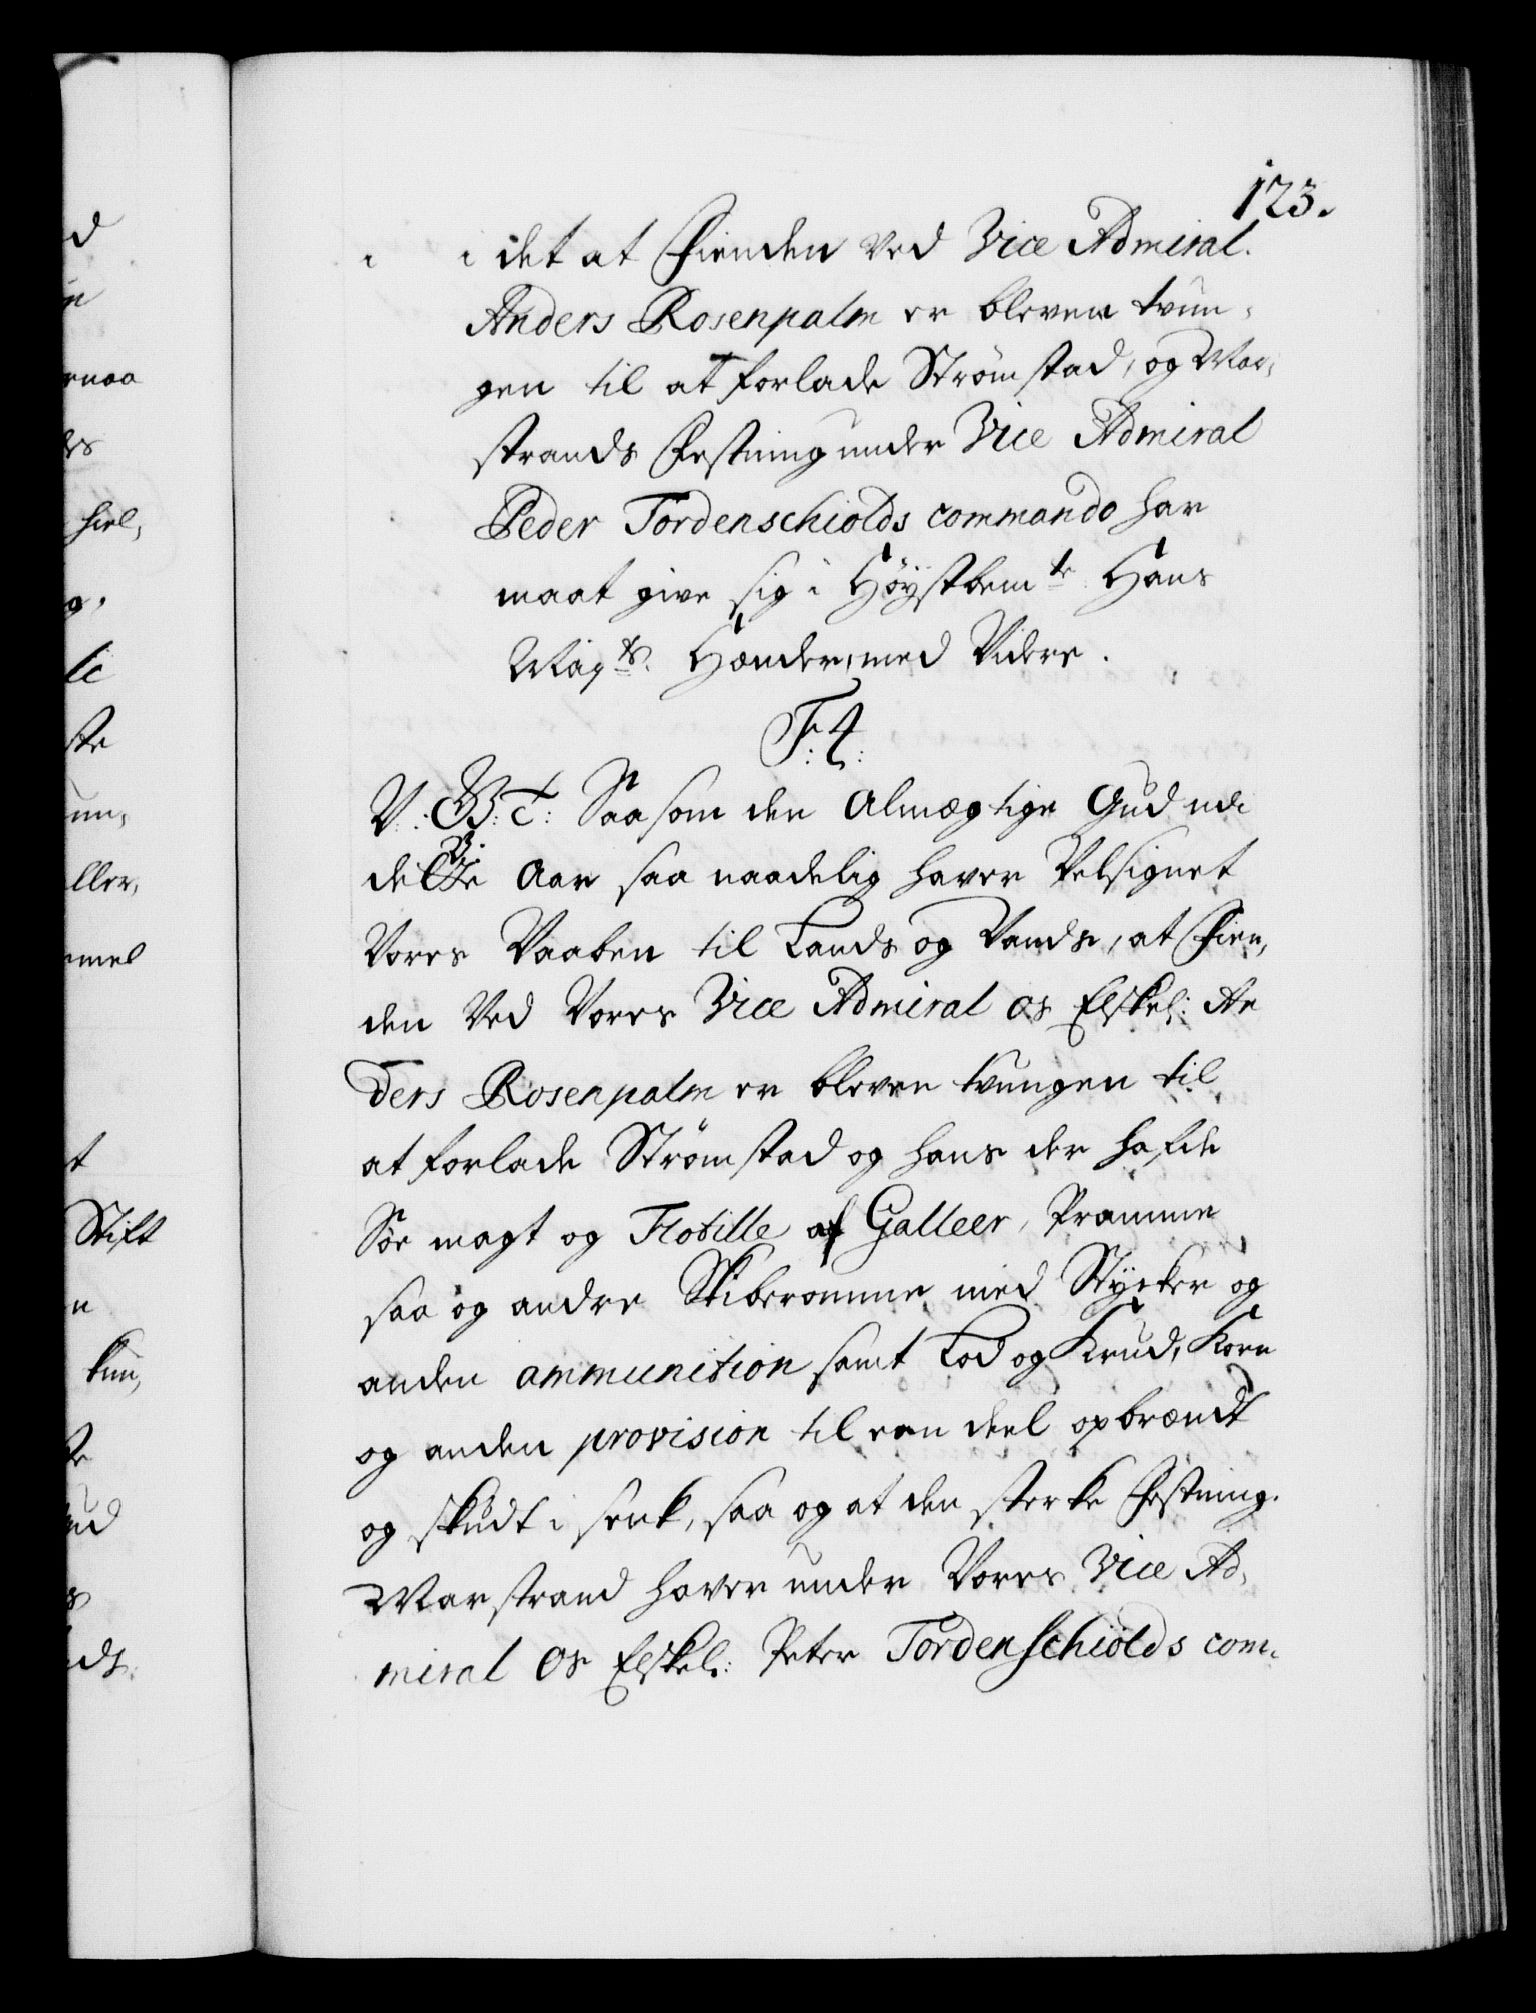 123.
i det at Fienden ved Vice Admiral.
Anders Rosenpalm er bleven tvun,
gen til at forlade Strømstad, og Mar,
strands Festning under Vice Admiral
Peder Tordenschiolds commando har
maat give sig i Høystbemte Hans
Mayts. Hænder, med Videre.
F. 4.
V: G: T: Saasom den Almægtige Gud udi
dette Aar saa naadelig haver Velsignet
Vores Vaaben til Lands og Vands, at Fien,
den Ved Vores Vice Admiral Os Elskel: An
ders Rosenpalm er bleven tvungen til
at forlade Strømstad og hans der hafde
Søe magt og Flotille af Galleer, Pramme
saa og andre Skiberomme med Stycker og
anden ammunition samt Lod og Krud, Korn
og anden provision til een deel opbrændt
og skudt i senk, saa og at den sterke Festning
Marstrand haver under Vores Vice Ad,
miral Os Elskel: Peter Tordenschiolds com,
d
n
rnaa
es
hiel,
g,
le
ste
un,
ller,
mel
t
Stift
n
kun,
te
ud
s
nds.